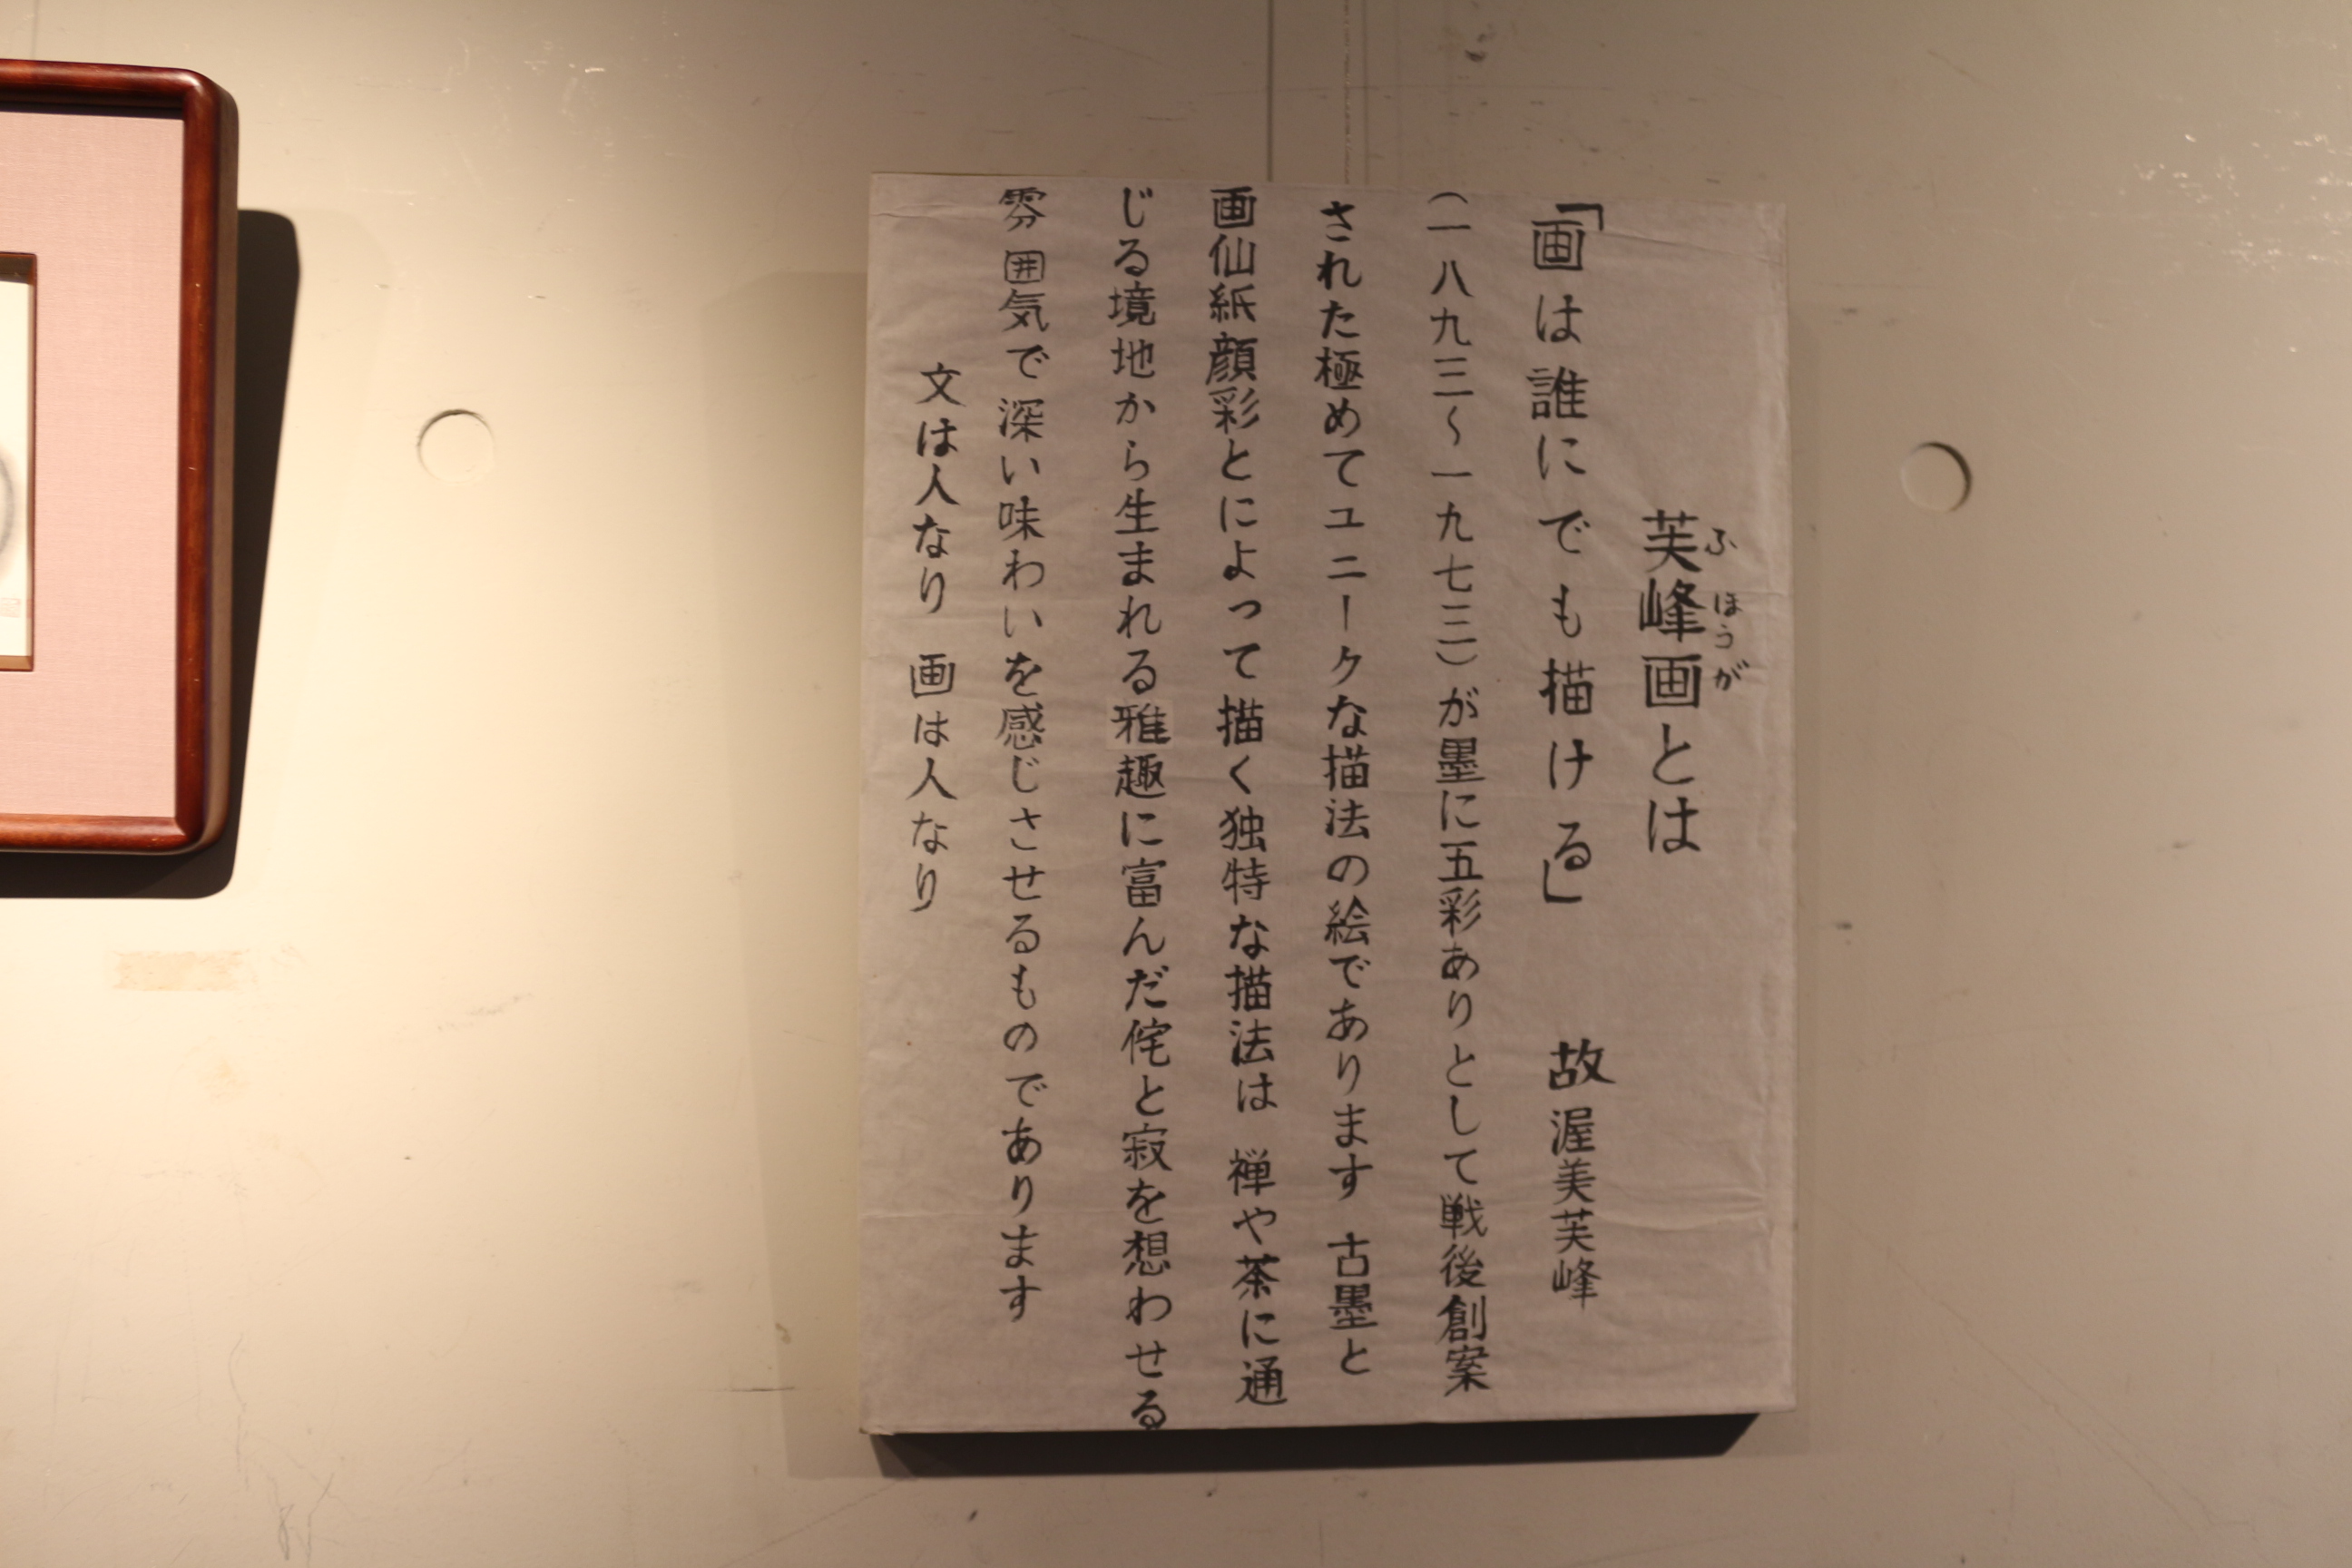 芙峰画とは
ふほうが
「画は誰にでも描ける」 故 渥美芙峰
(一八九三〜一九七三)が墨に五彩ありとして戦後創案
された極めてユニークな描法の絵であります 古墨と
画仙紙顔彩とによって描く独特な描法は 禅や茶に通
じる境地から生まれる雅趣に富んだ侘と寂を想わせる
雰囲気で深い味わいを感じさせるものであります
文は人なり 画は人なり